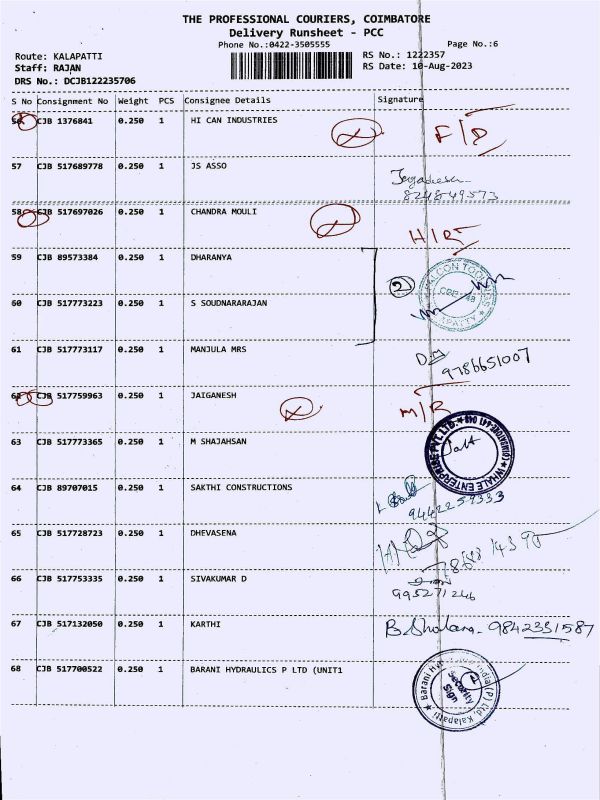 THE PROFESSIONAL COURIERS, COIMBATORE
Delivery Runsheet - PCC
Phone No.:0422-3505555
Page No.:6
Route: KALAPATTI
RS No.: 1222357
Staff: RAJAN
RS Date: 10-Aug-2023
DRS No.: DCJB122235706
S No Consignment No Weight PCS Consignee Details Signature
56 CJB 1376841 0.250 1 HI CAN INDUSTRIES F/D
57 CJB 517689778 0.250 1 JS ASSO
8248849573
58 CJB 517697026 0.250 1 CHANDRA MOULI
H/R
59 CJB 89573384 0.250 1 DHARANYA
2
60 CJB 517773223 0.250 1 S SOUDNARARAJAN
61 CJB 517773117 0.250 1 MANJULA MRS
9786651007
62 CJB 517759963 0.250 1 JAIGANESH
M/R
63 CJB 517773365 0.250 1 M SHAJAHSAN
WHALE ENTERPRISE PVT. LTD. COIMBATORE-641 048
64 CJB 89707015 0.250 1 SAKTHI CONSTRUCTIONS
9442259333
65 CJB 517728723 0.250 1 DHEVASENA
66 CJB 517753335 0.250 1 SIVAKUMAR D
995271246
67 CJB 517132050 0.250 1 KARTHI
9842331587
68 CJB 517700522 0.250 1 BARANI HYDRAULICS P LTD (UNIT1
Security
Sign
Kalapatti